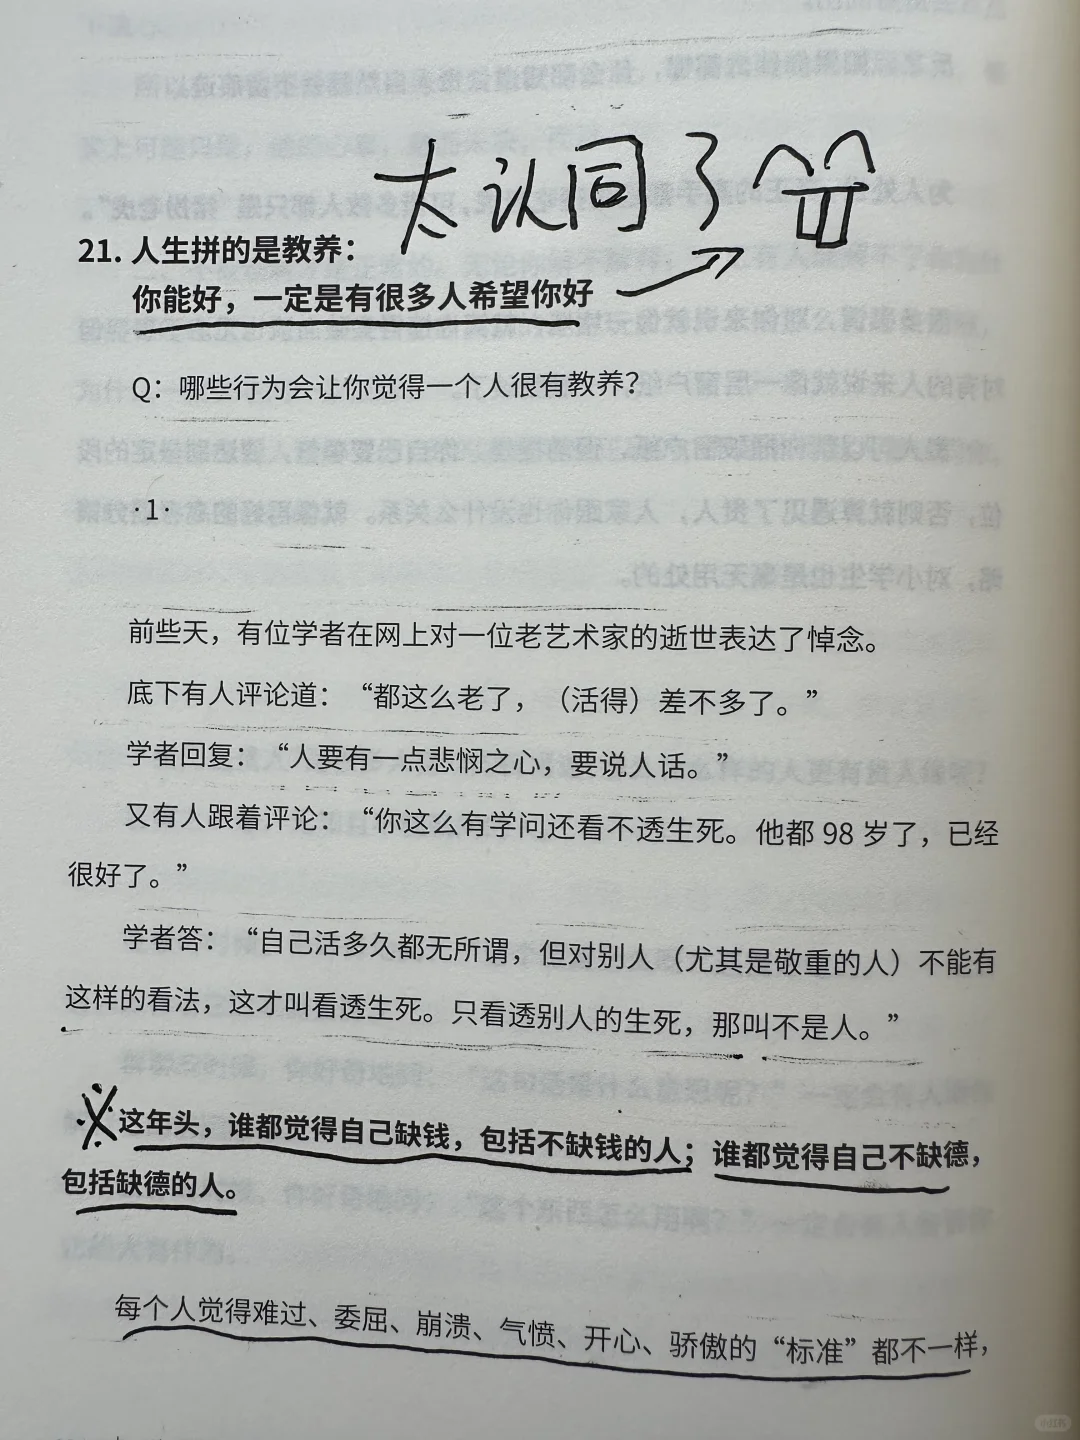 太认同了
21. 人生拼的是教养：
你能好，一定是有很多人希望你好
Q：哪些行为会让你觉得一个人很有教养？
·1·
前些天，有位学者在网上对一位老艺术家的逝世表达了悼念。
底下有人评论道：“都这么老了，（活得）差不多了。”
学者回复：“人要有一点悲悯之心，要说人话。”
又有人跟着评论：“你这么有学问还看不透生死。他都 98 岁了，已经
很好了。”
学者答：“自己活多久都无所谓，但对别人（尤其是敬重的人）不能有
这样的看法，这才叫看透生死。只看透别人的生死，那叫不是人。”
这年头，谁都觉得自己缺钱，包括不缺钱的人；谁都觉得自己不缺德，
包括缺德的人。
每个人觉得难过、委屈、崩溃、气愤、开心、骄傲的“标准”都不一样，
小红书